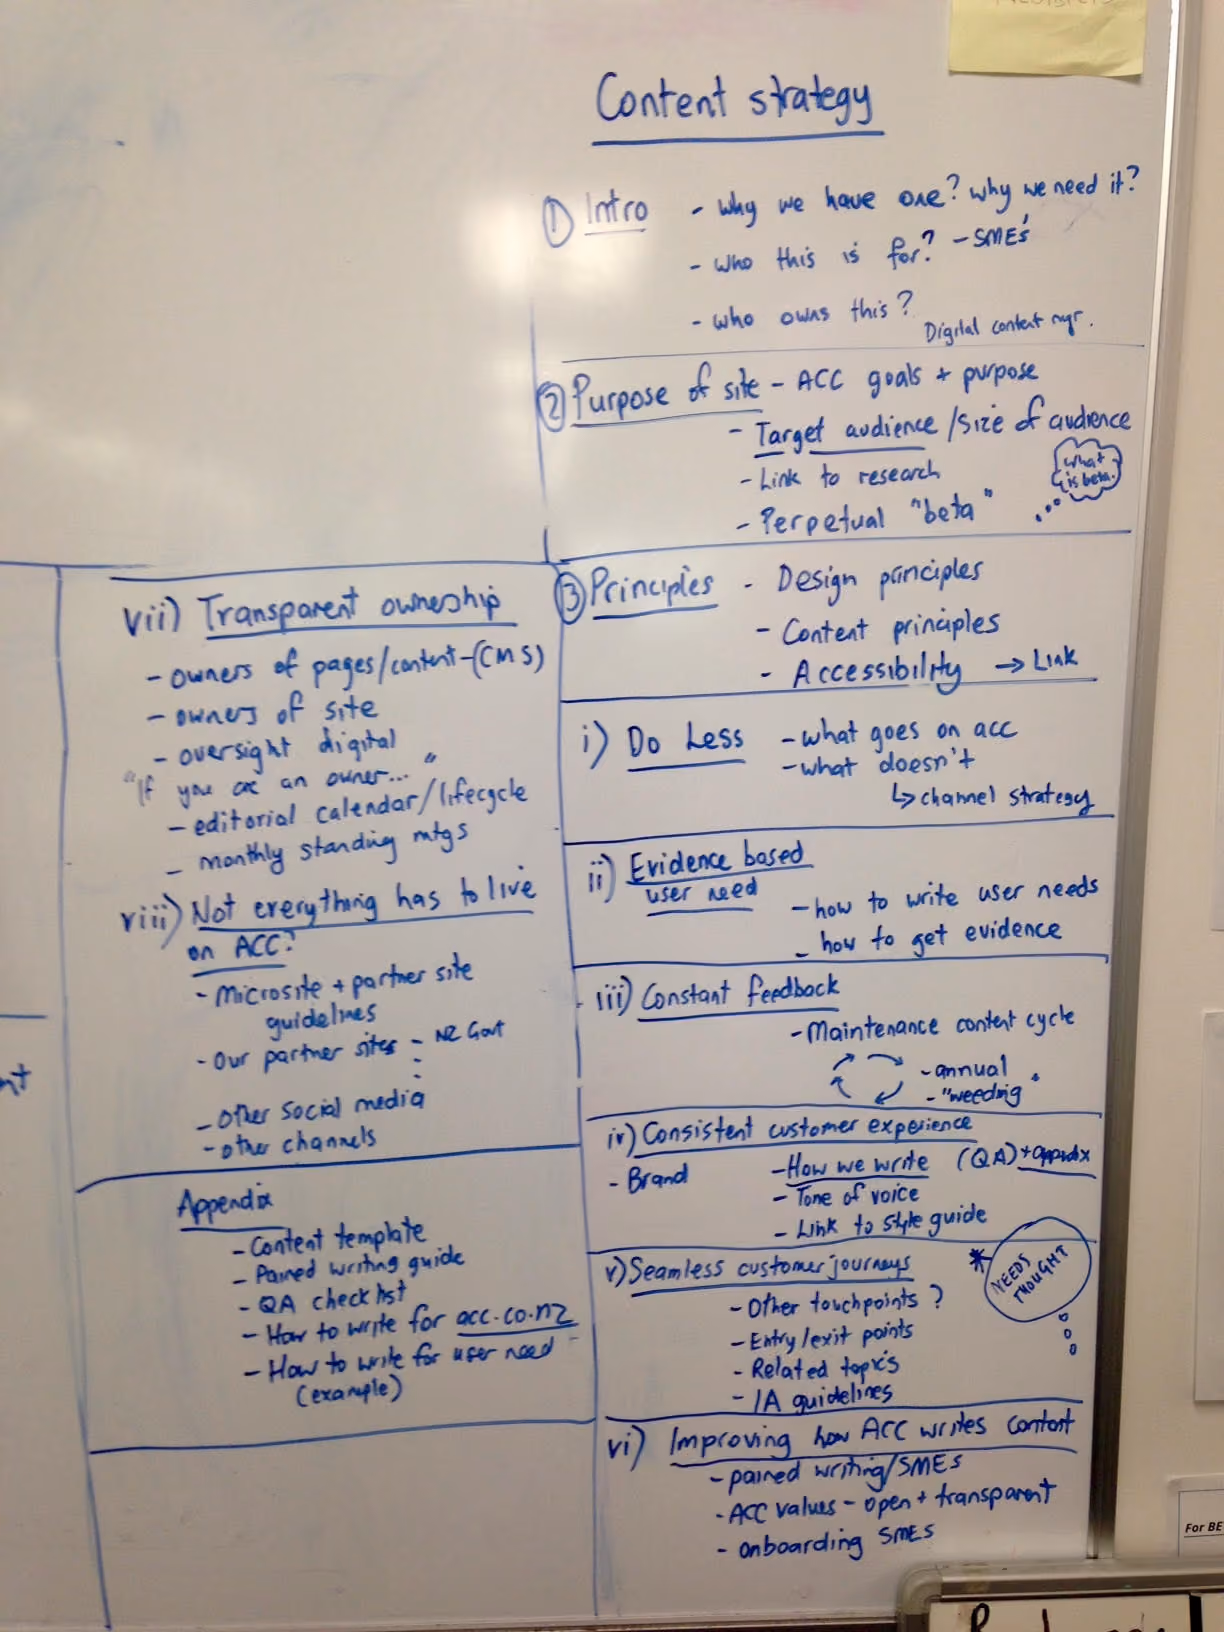 Content strategy
① Intro - why we have one? why we need it?
- who this is for? - SME's
- who owns this? Digital content mgr.
② Purpose of site - ACC goals + purpose
- Target audience / size of audience
- Link to research
- Perpetual "beta"
what
is beta.
③ Principles - Design principles
- Content principles
- Accessibility → Link
i) Do Less - what goes on acc
- what doesn't
↳ channel strategy
ii) Evidence based
user need
- how to write user needs
- how to get evidence
iii) Constant feedback
- Maintenance content cycle
- annual
- "weeding"
iv) Consistent customer experience
- Brand - How we write (QA) + appndix
- Tone of voice
- Link to style guide
v) Seamless customer journeys
* NEEDS
THOUGHT
- Other touchpoints?
- Entry/exit points
- Related topics
- IA guidelines
vi) Improving how ACC writes content
- paired writing/SMEs
- ACC values - open + transparent
- onboarding SMEs
vii) Transparent ownership
- owners of pages/content - (CMS)
- owners of site
- oversight digital
"If you are an owner..."
- editorial calendar/lifecycle
- monthly standing mtgs
viii) Not everything has to live
on ACC?
- Microsite + partner site
guidelines
- Our partner sites - NZ Govt
- Other social media
- other channels
Appendix
- Content template
- Paired writing guide
- QA checklist
- How to write for acc.co.nz
- How to write for user need
(example)
For BE